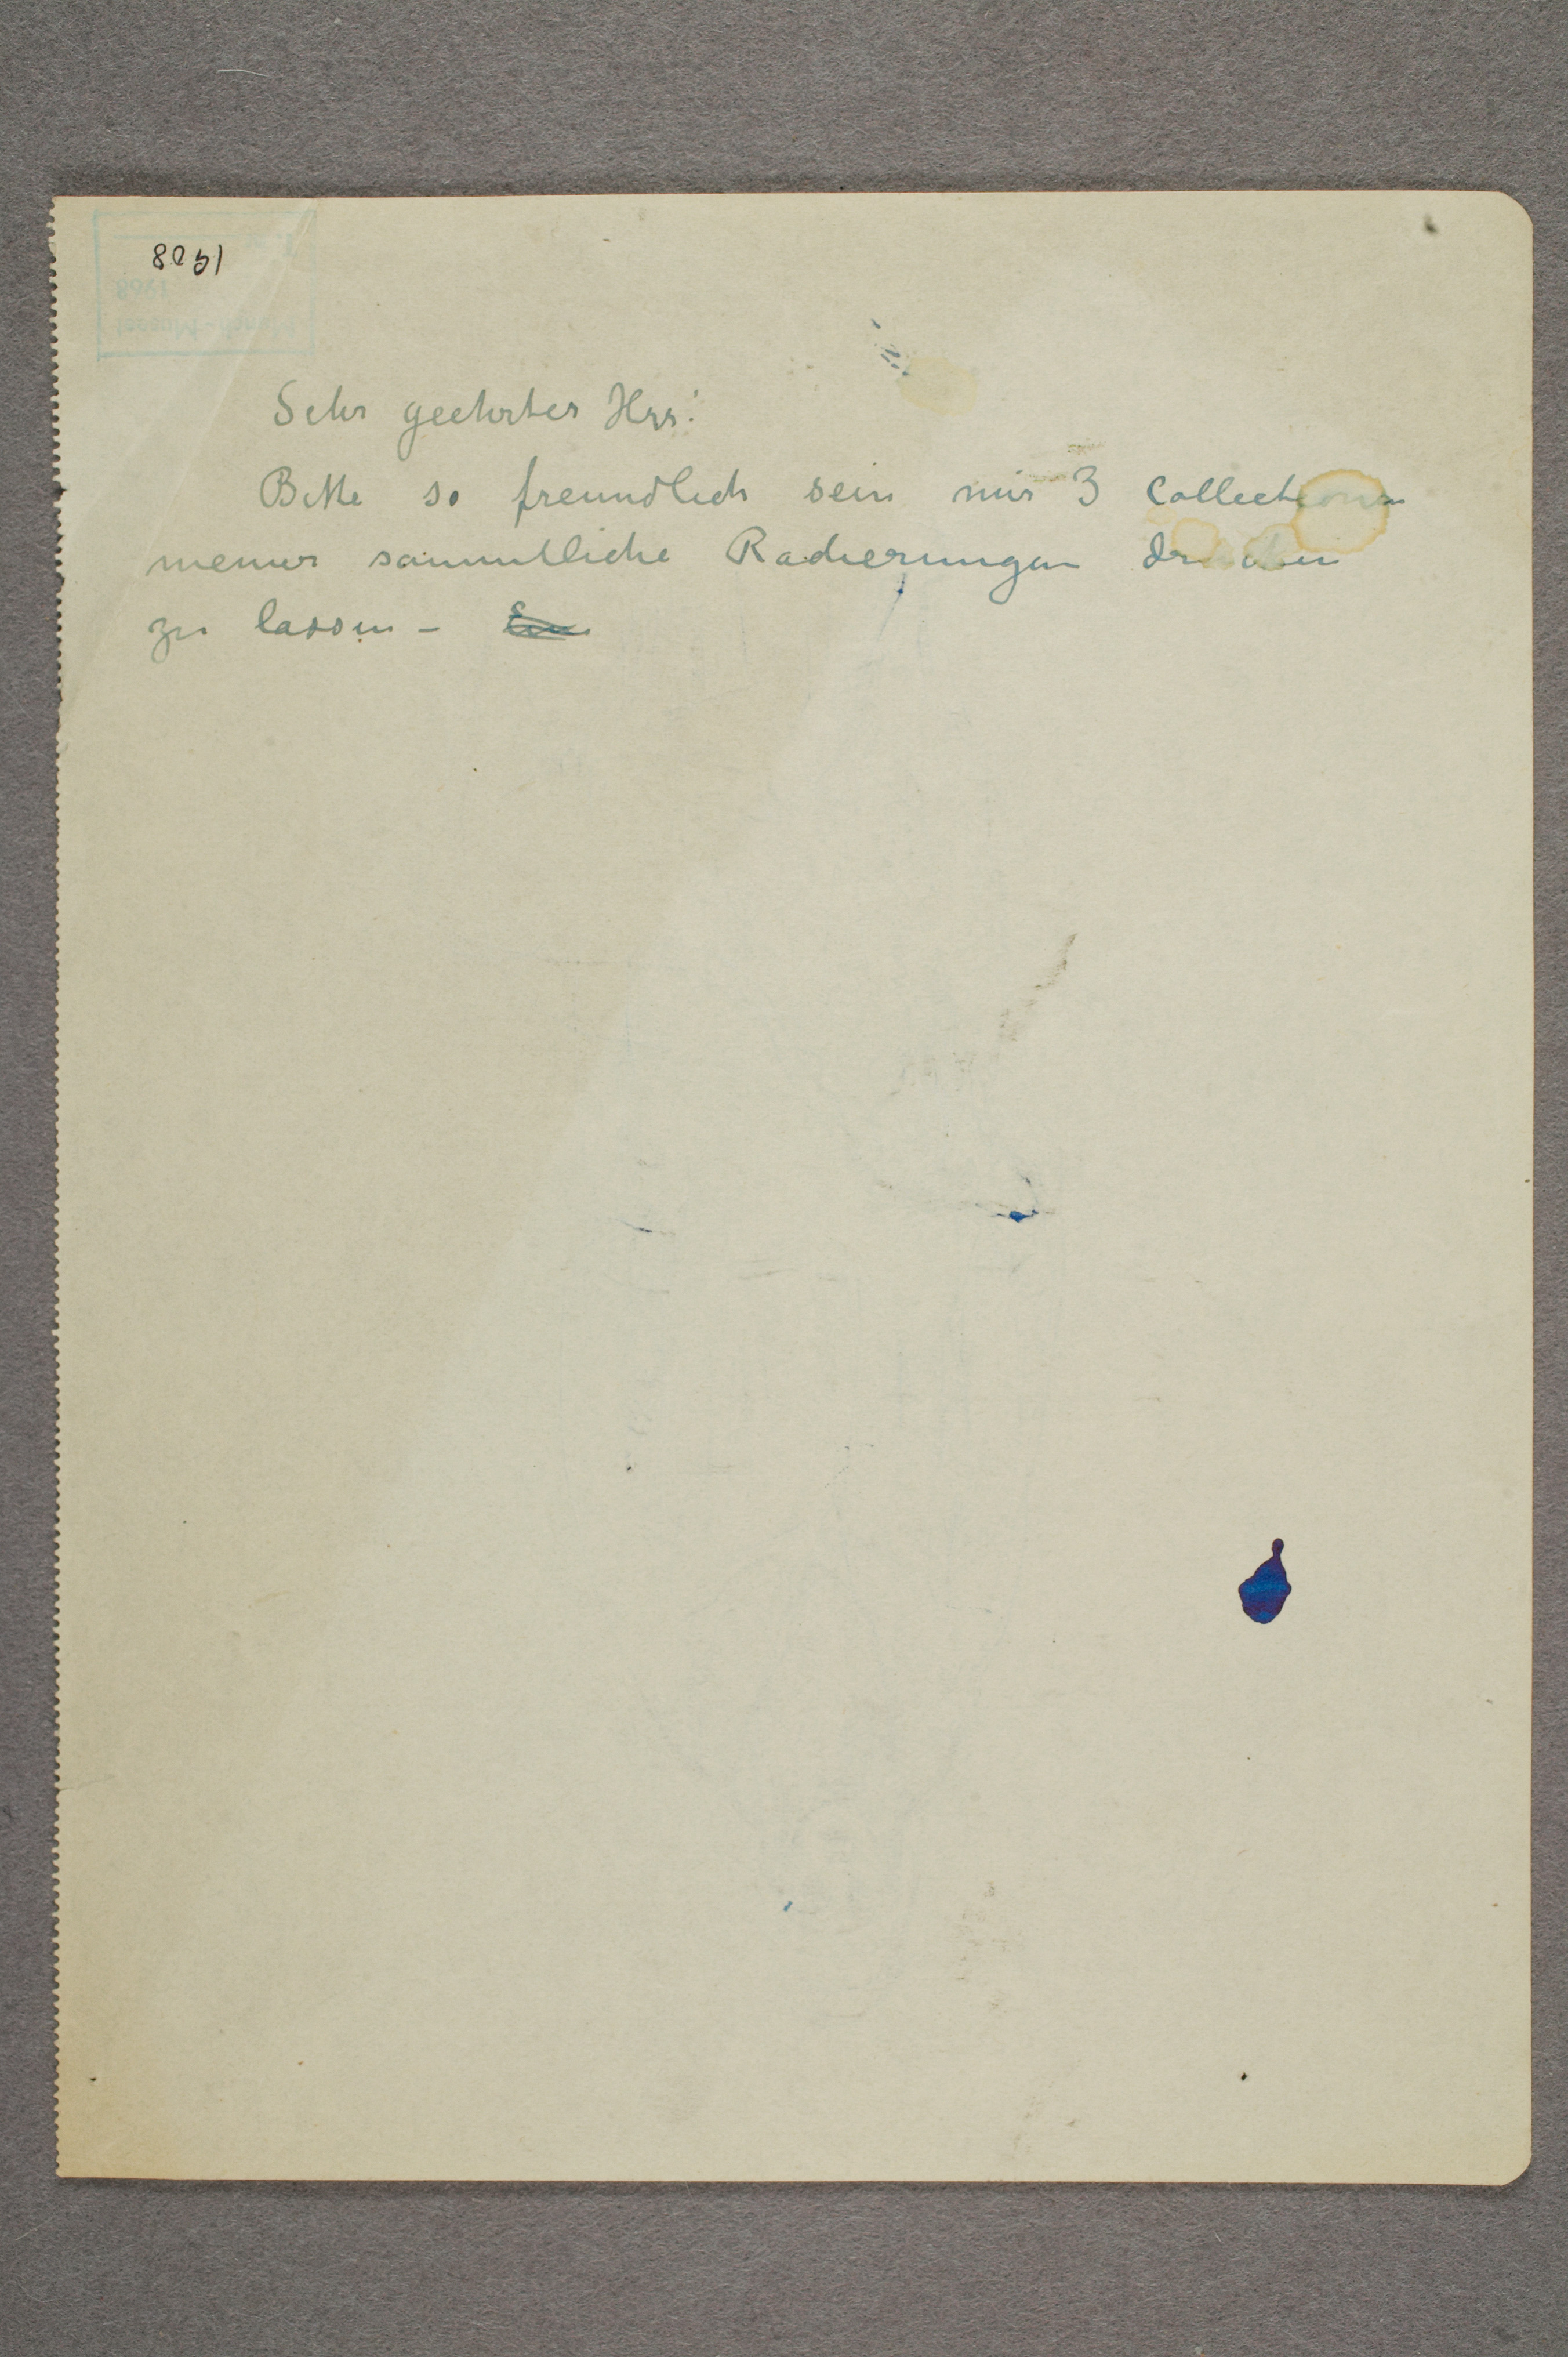 Sehr geehrter Hrr!
Bitte so freundlich sein mir 3 Collectionen
meiner sämmtliche Radierungen drucken
zu lassen –